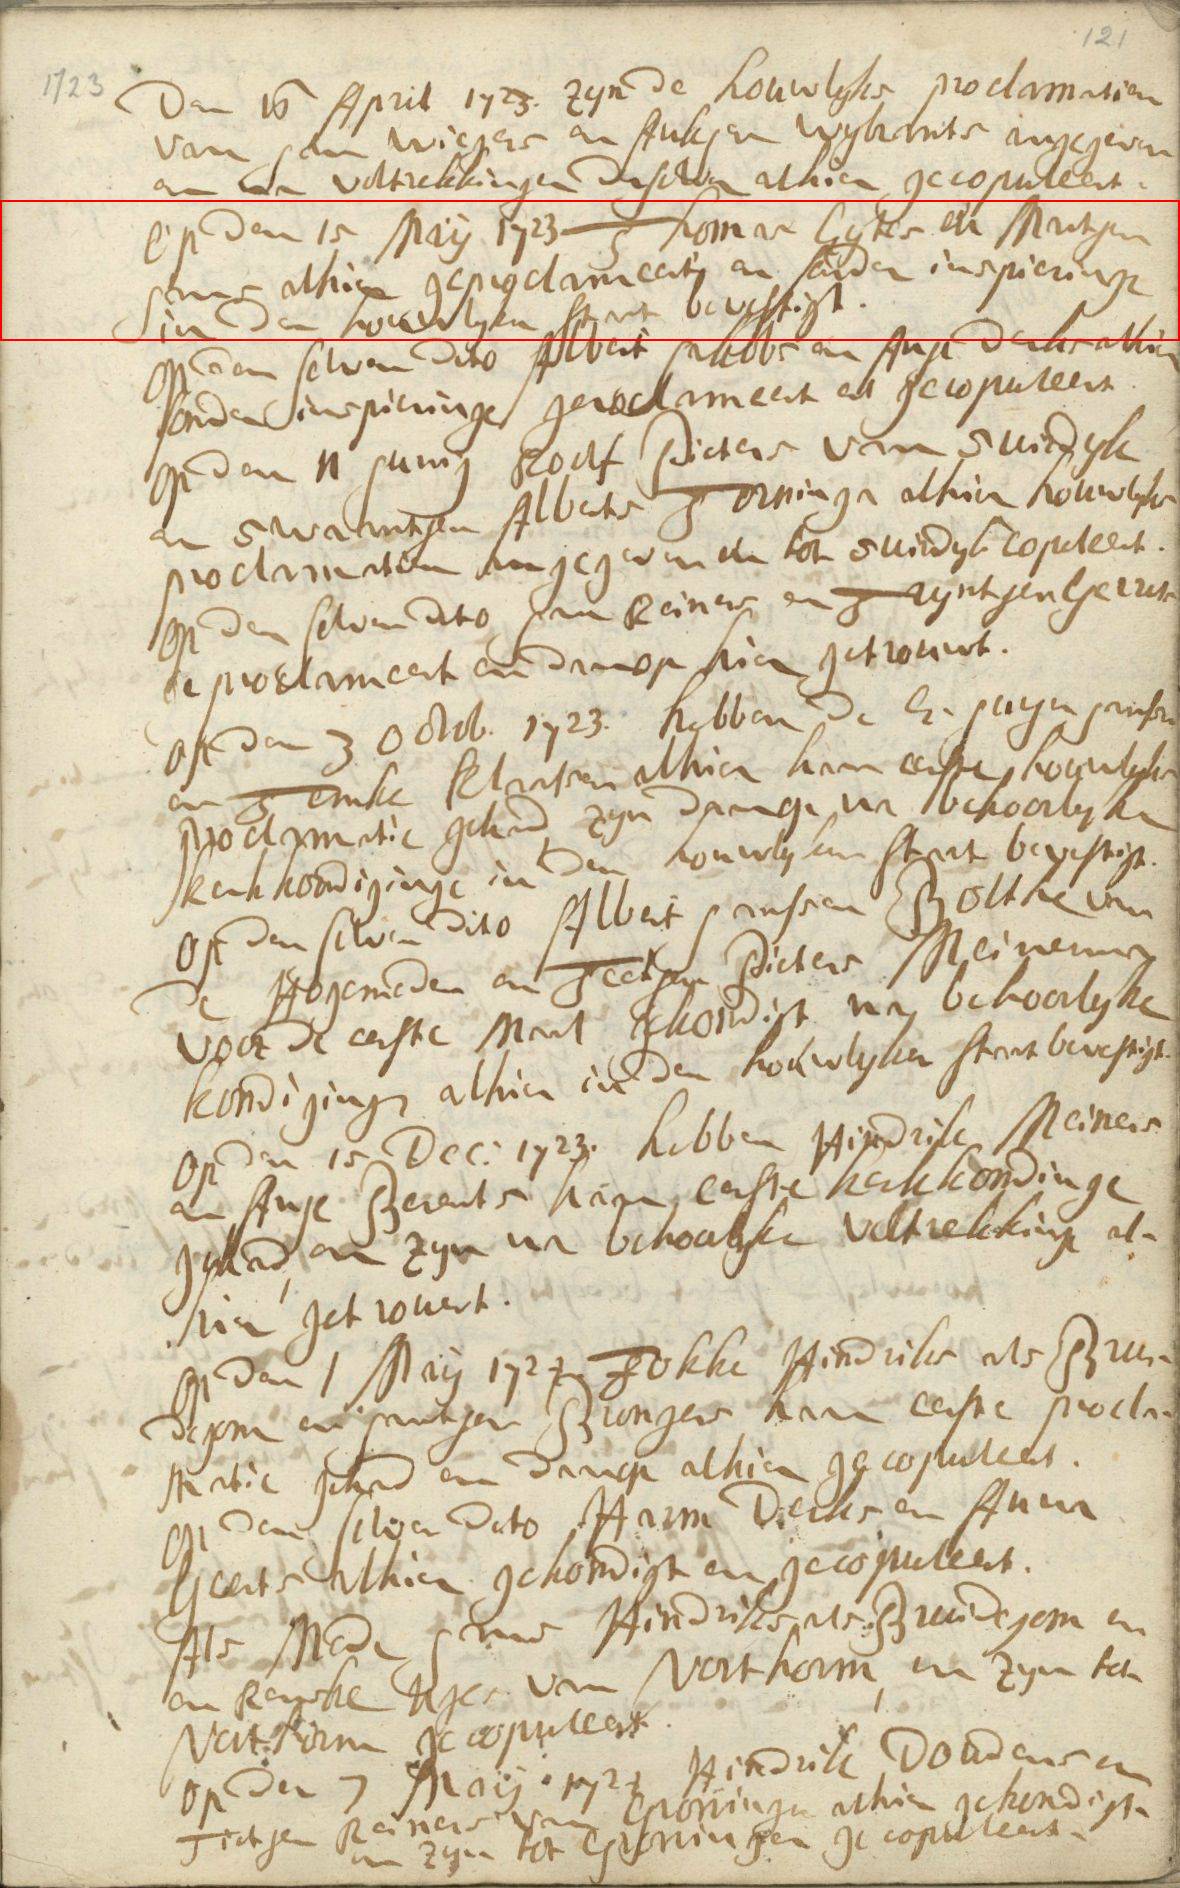 121
1723
Den 16 April 1723. zyn de houwlyks proclamatien
van Jan Wiegers en Aukjen Wybrants angegeven
en na voltrekkingen deselve alhier gecopuleert.
Op den 15 Maij 1723 Tomas Eytes en Martjen
Jans alhier geproclameert en sonder inspieringe
in den houwlyken staat bevestigt.
Op den selven dito Albert Jakobs en Anje Derks alhier
sonder inspieringe geproclameert en gecopuleert
Op den 11 Junij Roelf Pieters van Suidyk
en Swaantjen Alberts Torninga alhier houwlyks
proclamatien angegeven en tot Suidyk copuleert.
Op den selven dito Jan Reiners en Tryntjen Gerrits
geproclameert en daarop hier getrouwt.
Op den 3 Octob. 1723. hebben de E. Jurjen Jansen
en Temke Klaassen alhier haar eerste houwlyks
proclamatie gehad zyn daarop na behoorlyke
kerkkondiginge in den houwlyken staat bevestigt.
Op den selven dito Albert Janssen Bolthe van
de Hogemeden en Teetjen Pieters Meinema
voor de eerste maal gekondigt na behoorlyke
kondiginge alhier in den houwlyken staat bevestigt.
Op den 15 Dec: 1723. hebben Hindrik Meiners
en Anje Berents haar eerste kerkkondinge
gehad, en zyn na behoorlyke voltrekking al-
hier getrouwt.
Op den 1 Maij 1724 Fokke Hindriks als Brui-
degom en Jantjen Brongers haar eerste procla-
matie gehad en daarop alhier gecopuleert.
Op den selven dito Harm Derks en Anna
Geerts alhier gekondigt en gecopuleert.
Als Mede Jans Hindriks als Bruidegom en
en Renske van Northorm, en zyn tot
Northorm gecopuleert.
Op den 7 Maij 1724 Hindrik Doudens en
Tietjen Reiners van Groningen alhier gekondigt
en zyn tot Groningen gecopuleert.